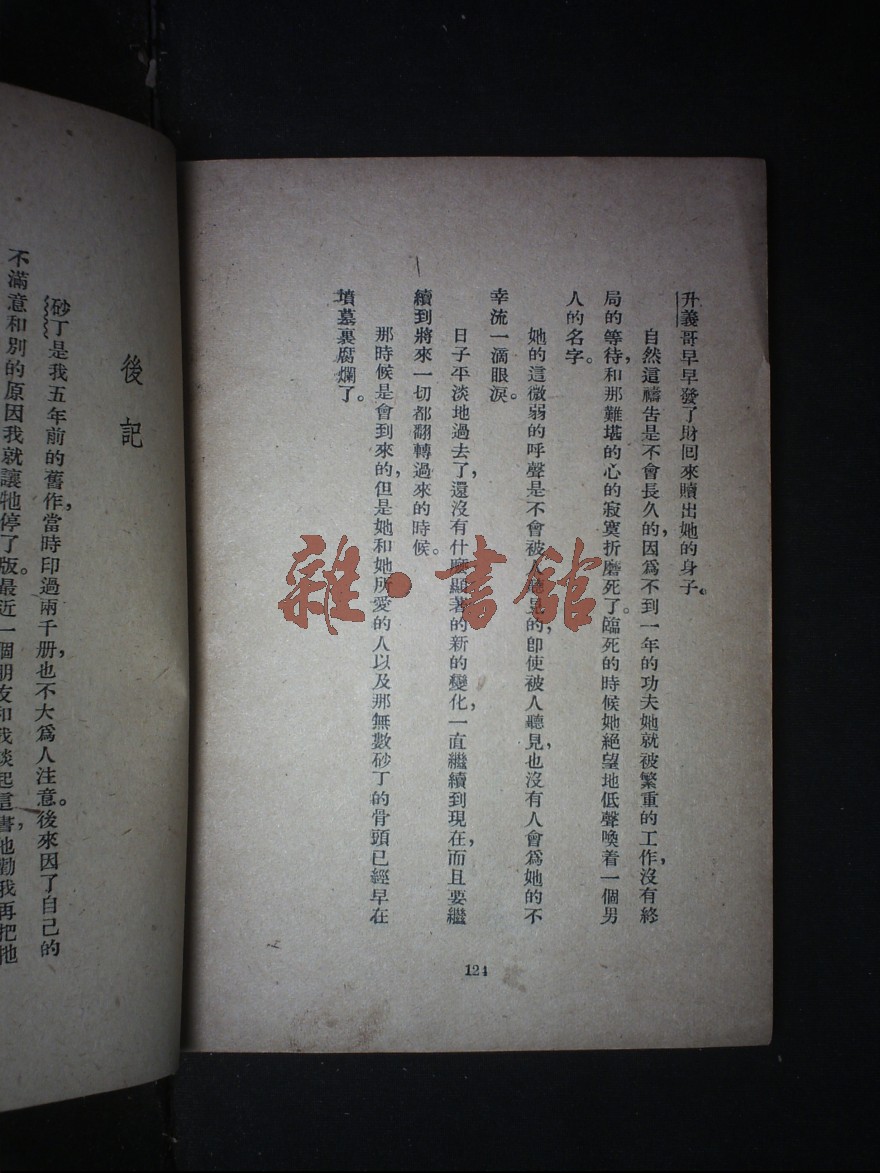 升義哥早早發了財囘來贖出她的身子。
自然這禱告是不會長久的，因爲不到一年的功夫她就被繁重的工作，沒有終
局的等待，和那難堪的心的寂寞折磨死了。臨死的時候她絕望地低聲喚着一個男
人的名字。
她的這微弱的呼聲是不會被人聽見的，卽使被人聽見，也沒有人會爲她的不
幸流一滴眼淚。
日子平淡地過去了，還沒有什麼顯著的新的變化，一直繼續到現在，而且要繼
續到將來一切都翻轉過來的時候。
那時候是會到來的，但是她和她所愛的人以及那無數砂丁的骨頭已經早在
墳墓裏腐爛了。
124
後記
砂丁是我五年前的舊作，當時印過兩千册，也不大爲人注意。後來因了自己的
不滿意和別的原因我就讓牠停了版。最近一個朋友和我談起這書，他勸我再把牠
雜·書館